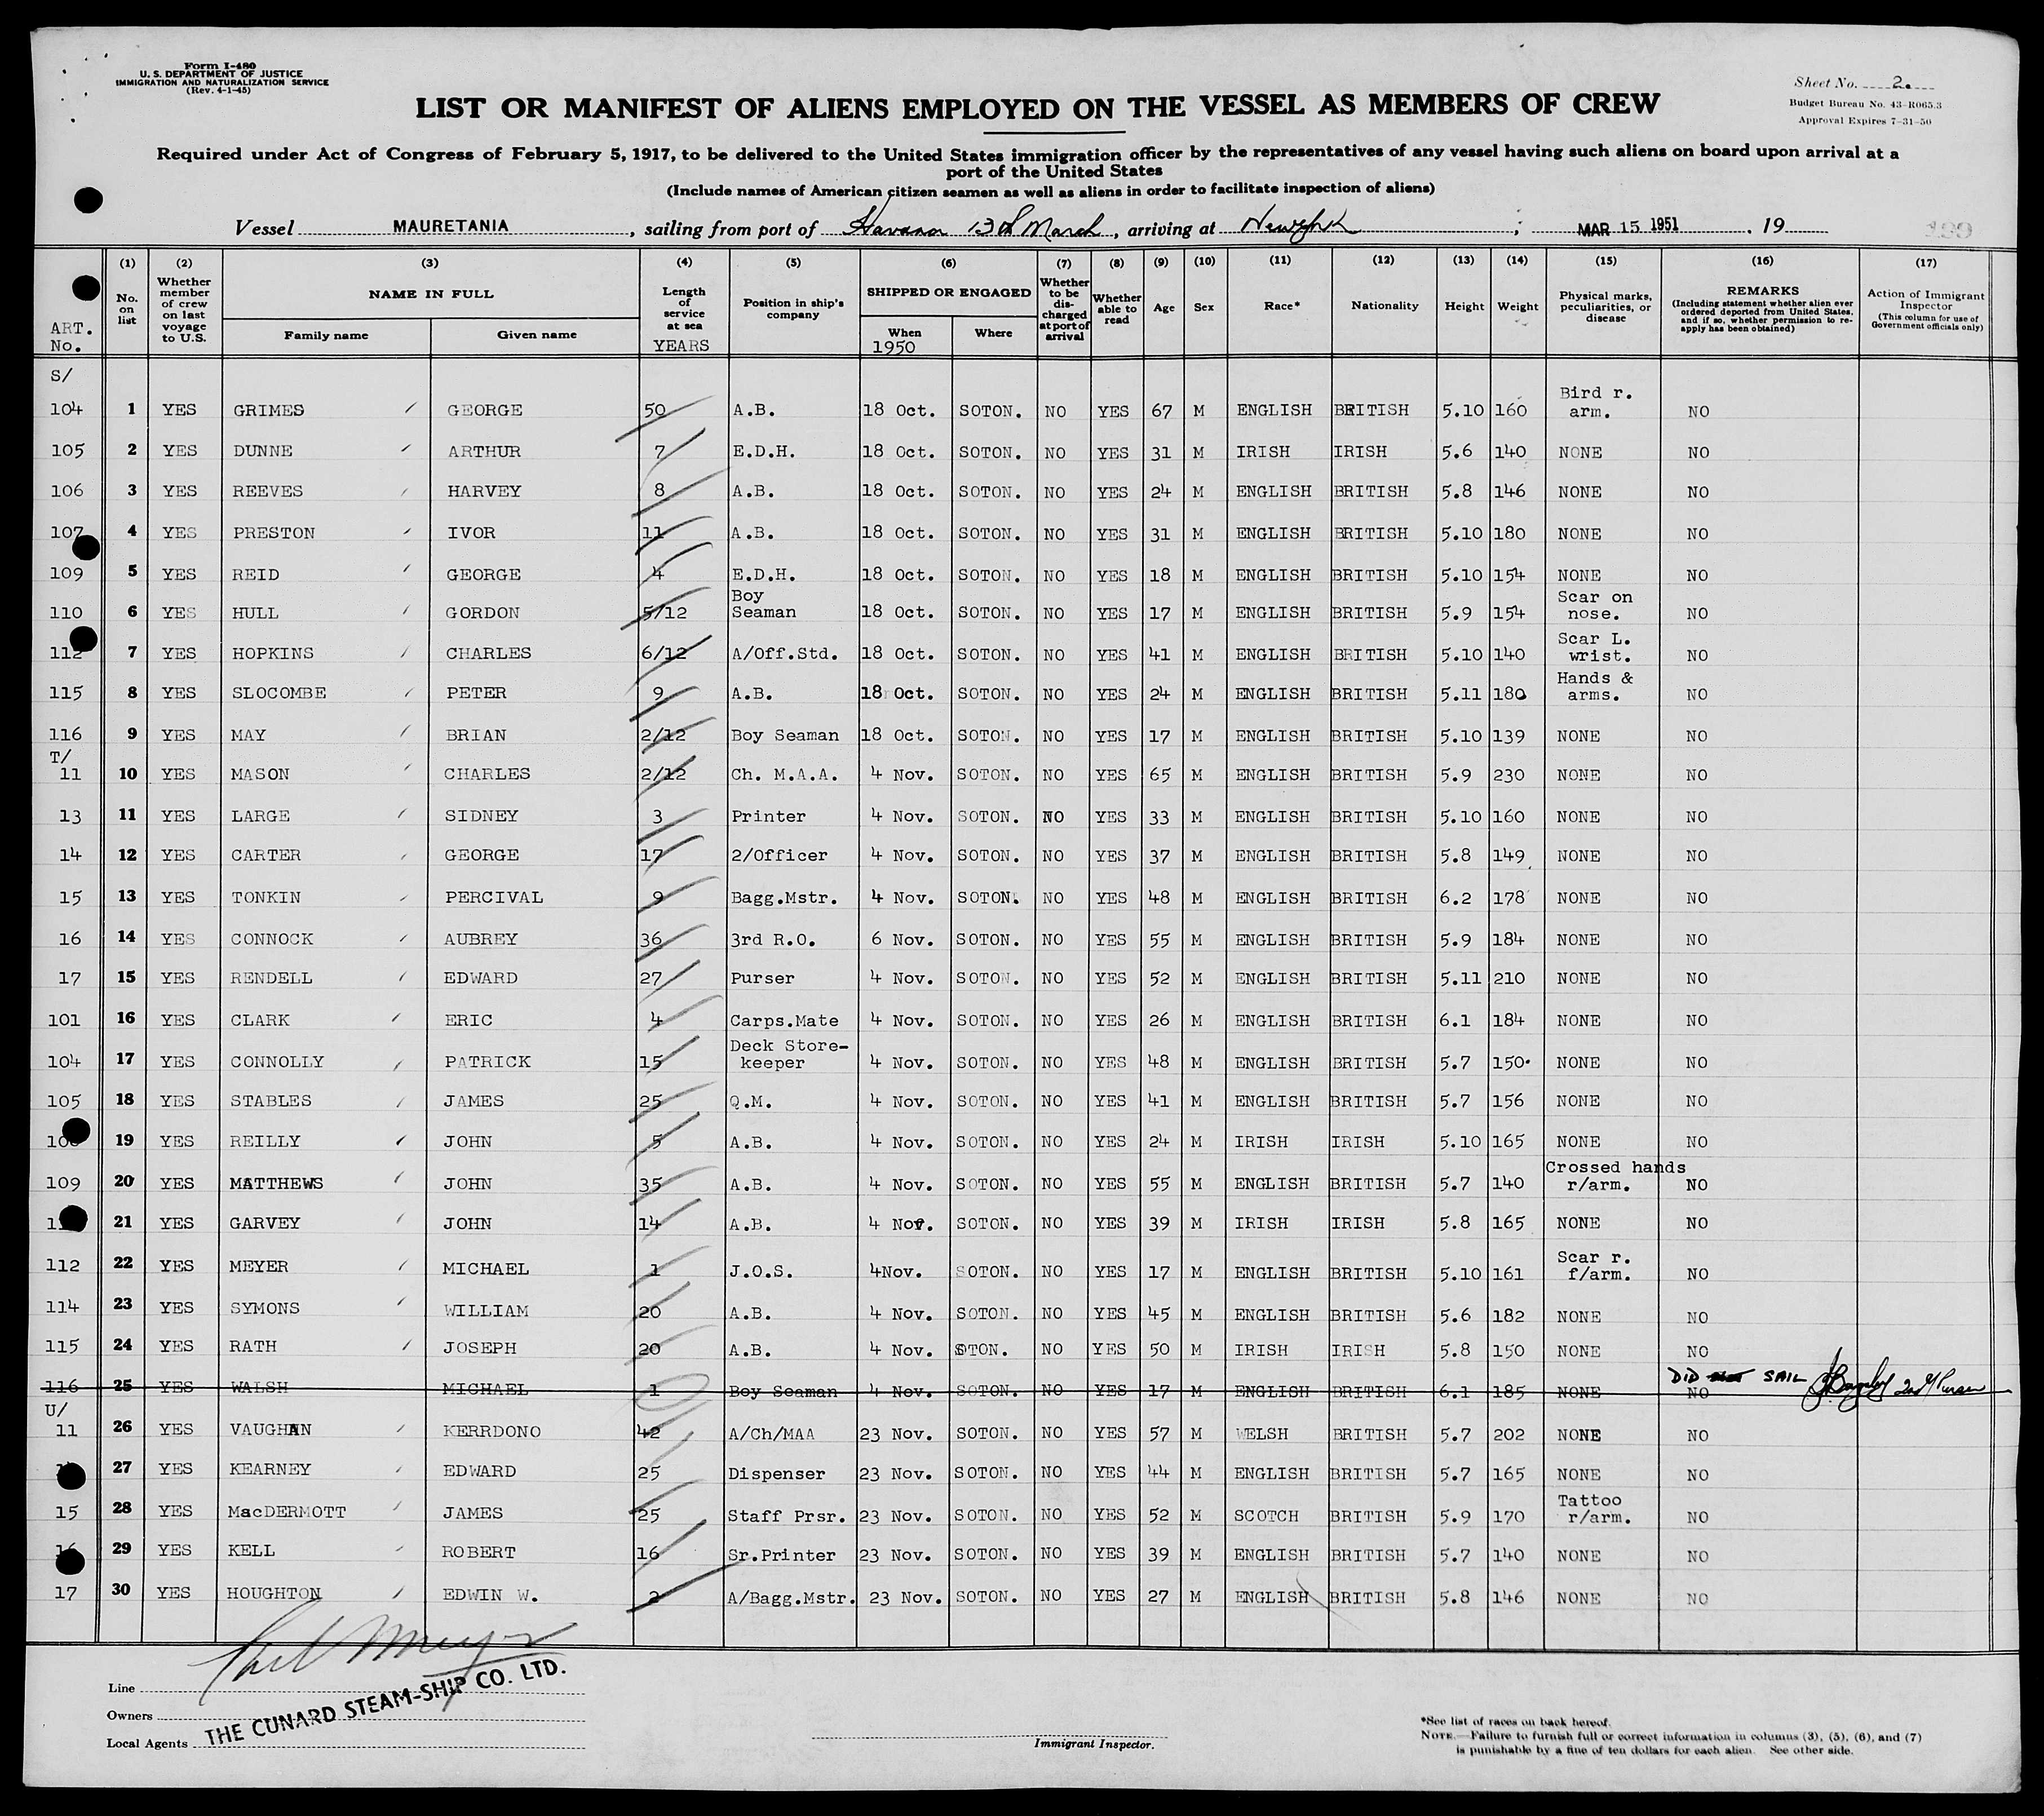 Form I-480
U. S. DEPARTMENT OF JUSTICE
IMMIGRATION AND NATURALIZATION SERVICE
(Rev. 4-1-45)
Sheet No. 2.
Budget Bureau No. 43-R065.3
Approval Expires 7-31-50
LIST OR MANIFEST OF ALIENS EMPLOYED ON THE VESSEL AS MEMBERS OF CREW
Required under Act of Congress of February 5, 1917, to be delivered to the United States immigration officer by the representatives of any vessel having such aliens on board upon arrival at a
port of the United States
(Include names of American citizen seamen as well as aliens in order to facilitate inspection of aliens)
Vessel MAURETANIA, sailing from port of Havana 13th March, arriving at New York; MAR 15 1951, 19
ART. No. (1) No. on list (2) Whether member of crew on last voyage to U.S. (3) NAME IN FULL Family name Given name (4) Length of service at sea YEARS (5) Position in ship's company (6) SHIPPED OR ENGAGED When 1950 Where (7) Whether to be discharged at port of arrival (8) Whether able to read (9) Age (10) Sex (11) Race* (12) Nationality (13) Height (14) Weight (15) Physical marks, peculiarities, or disease (16) REMARKS (Including statement whether alien ever ordered deported from United States, and if so, whether permission to reapply has been obtained) (17) Action of Immigrant Inspector (This column for use of Government officials only)
S/
104 1 YES GRIMES GEORGE 50 A.B. 18 Oct. SOTON. NO YES 67 M ENGLISH BRITISH 5.10 160 Bird r. arm. NO
105 2 YES DUNNE ARTHUR 7 E.D.H. 18 Oct. SOTON. NO YES 31 M IRISH IRISH 5.6 140 NONE NO
106 3 YES REEVES HARVEY 8 A.B. 18 Oct. SOTON. NO YES 24 M ENGLISH BRITISH 5.8 146 NONE NO
107 4 YES PRESTON IVOR 11 A.B. 18 Oct. SOTON. NO YES 31 M ENGLISH BRITISH 5.10 180 NONE NO
109 5 YES REID GEORGE 4 E.D.H. 18 Oct. SOTON. NO YES 18 M ENGLISH BRITISH 5.10 154 NONE NO
110 6 YES HULL GORDON 5/12 Boy Seaman 18 Oct. SOTON. NO YES 17 M ENGLISH BRITISH 5.9 154 Scar on nose. NO
112 7 YES HOPKINS CHARLES 6/12 A/Off.Std. 18 Oct. SOTON. NO YES 41 M ENGLISH BRITISH 5.10 140 Scar L. wrist. NO
115 8 YES SLOCOMBE PETER 9 A.B. 18 Oct. SOTON. NO YES 24 M ENGLISH BRITISH 5.11 180 Hands & arms. NO
116 9 YES MAY BRIAN 2/12 Boy Seaman 18 Oct. SOTON. NO YES 17 M ENGLISH BRITISH 5.10 139 NONE NO
T/
11 10 YES MASON CHARLES 2/12 Ch. M.A.A. 4 Nov. SOTON. NO YES 65 M ENGLISH BRITISH 5.9 230 NONE NO
13 11 YES LARGE SIDNEY 3 Printer 4 Nov. SOTON. NO YES 33 M ENGLISH BRITISH 5.10 160 NONE NO
14 12 YES CARTER GEORGE 17 2/Officer 4 Nov. SOTON. NO YES 37 M ENGLISH BRITISH 5.8 149 NONE NO
15 13 YES TONKIN PERCIVAL 9 Bagg.Mstr. 4 Nov. SOTON. NO YES 48 M ENGLISH BRITISH 6.2 178 NONE NO
16 14 YES CONNOCK AUBREY 36 3rd R.O. 6 Nov. SOTON. NO YES 55 M ENGLISH BRITISH 5.9 184 NONE NO
17 15 YES RENDELL EDWARD 27 Purser 4 Nov. SOTON. NO YES 52 M ENGLISH BRITISH 5.11 210 NONE NO
101 16 YES CLARK ERIC 4 Carps.Mate 4 Nov. SOTON. NO YES 26 M ENGLISH BRITISH 6.1 184 NONE NO
104 17 YES CONNOLLY PATRICK 15 Deck Store-keeper 4 Nov. SOTON. NO YES 48 M ENGLISH BRITISH 5.7 150 NONE NO
105 18 YES STABLES JAMES 25 Q.M. 4 Nov. SOTON. NO YES 41 M ENGLISH BRITISH 5.7 156 NONE NO
19 YES REILLY JOHN 5 A.B. 4 Nov. SOTON. NO YES 24 M IRISH IRISH 5.10 165 NONE NO
109 20 YES MATTHEWS JOHN 35 A.B. 4 Nov. SOTON. NO YES 55 M ENGLISH BRITISH 5.7 140 Crossed hands r/arm. NO
21 YES GARVEY JOHN 14 A.B. 4 Nov. SOTON. NO YES 39 M IRISH IRISH 5.8 165 NONE NO
112 22 YES MEYER MICHAEL 1 J.O.S. 4Nov. SOTON. NO YES 17 M ENGLISH BRITISH 5.10 161 Scar r. f/arm. NO
114 23 YES SYMONS WILLIAM 20 A.B. 4 Nov. SOTON. NO YES 45 M ENGLISH BRITISH 5.6 182 NONE NO
115 24 YES RATH JOSEPH 20 A.B. 4 Nov. SOTON. NO YES 50 M IRISH IRISH 5.8 150 NONE NO
116 25 YES WALSH MICHAEL 1 Boy Seaman 4 Nov. SOTON. NO YES 17 M ENGLISH BRITISH 6.1 185 NONE NO DID NOT SAIL 2nd Purser
U/
11 26 YES VAUGHAN KERRDONO 42 A/Ch/MAA 23 Nov. SOTON. NO YES 57 M WELSH BRITISH 5.7 202 NONE NO
27 YES KEARNEY EDWARD 25 Dispenser 23 Nov. SOTON. NO YES 44 M ENGLISH BRITISH 5.7 165 NONE NO
15 28 YES MacDERMOTT JAMES 25 Staff Prsr. 23 Nov. SOTON. NO YES 52 M SCOTCH BRITISH 5.9 170 Tattoo r/arm. NO
16 29 YES KELL ROBERT 16 Sr.Printer 23 Nov. SOTON. NO YES 39 M ENGLISH BRITISH 5.7 140 NONE NO
17 30 YES HOUGHTON EDWIN W. 2 A/Bagg.Mstr. 23 Nov. SOTON. NO YES 27 M ENGLISH BRITISH 5.8 146 NONE NO
Line
Owners
Local Agents
THE CUNARD STEAM-SHIP CO. LTD.
Immigrant Inspector.
*See list of races on back hereof.
NOTE.—Failure to furnish full or correct information in columns (3), (5), (6), and (7)
is punishable by a fine of ten dollars for each alien. See other side.